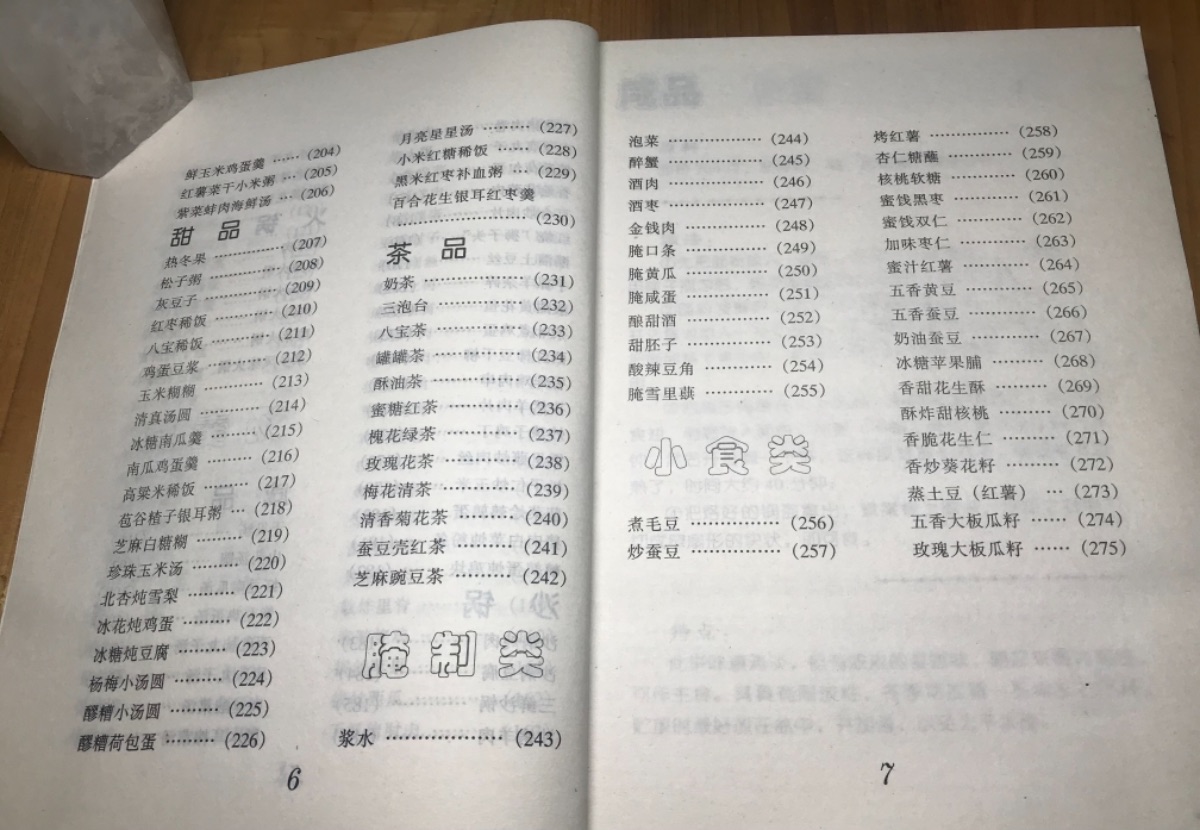 鲜玉米鸡蛋羹 …… (204)
红薯菜干小米粥 … (205)
紫菜蚌肉海鲜汤 … (206)
甜 品
热冬果 ……………… (207)
松子粥 ……………… (208)
灰豆子 ……………… (209)
红枣稀饭 …………… (210)
八宝稀饭 …………… (211)
鸡蛋豆浆 …………… (212)
玉米糊糊 …………… (213)
清真汤圆 …………… (214)
冰糖南瓜羹 ………… (215)
南瓜鸡蛋羹 ………… (216)
高粱米稀饭 ………… (217)
苞谷楂子银耳粥 … (218)
芝麻白糖糊 ………… (219)
珍珠玉米汤 ………… (220)
北杏炖雪梨 ………… (221)
冰花炖鸡蛋 ………… (222)
冰糖炖豆腐 ………… (223)
杨梅小汤圆 ……… (224)
醪糟小汤圆 ……… (225)
醪糟荷包蛋 ……… (226)
月亮星星汤 ……… (227)
小米红糖稀饭 …… (228)
黑米红枣补血粥 … (229)
百合花生银耳红枣羹
……………………… (230)
茶 品
奶茶 ………………… (231)
三泡台 ……………… (232)
八宝茶 ……………… (233)
罐罐茶 ……………… (234)
酥油茶 ……………… (235)
蜜糖红茶 ………… (236)
槐花绿茶 ………… (237)
玫瑰花茶 ………… (238)
梅花清茶 ………… (239)
清香菊花茶 ……… (240)
蚕豆壳红茶 ……… (241)
芝麻豌豆茶 ……… (242)
腌制类
浆水 ………………… (243)
6
泡菜 ……………… (244)
醉蟹 ……………… (245)
酒肉 ……………… (246)
酒枣 ……………… (247)
金钱肉 …………… (248)
腌口条 …………… (249)
腌黄瓜 …………… (250)
腌咸蛋 …………… (251)
酿甜酒 …………… (252)
甜胚子 …………… (253)
酸辣豆角 ………… (254)
腌雪里蕻 ………… (255)
小食类
煮毛豆 …………… (256)
炒蚕豆 …………… (257)
烤红薯 …………… (258)
杏仁糖蘸 ………… (259)
核桃软糖 ………… (260)
蜜饯黑枣 ………… (261)
蜜饯双仁 ………… (262)
加味枣仁 ………… (263)
蜜汁红薯 ………… (264)
五香黄豆 ………… (265)
五香蚕豆 ………… (266)
奶油蚕豆 ………… (267)
冰糖苹果脯 ……… (268)
香甜花生酥 ……… (269)
酥炸甜核桃 ……… (270)
香脆花生仁 ……… (271)
香炒葵花籽 ……… (272)
蒸土豆(红薯) … (273)
五香大板瓜籽 …… (274)
玫瑰大板瓜籽 …… (275)
7